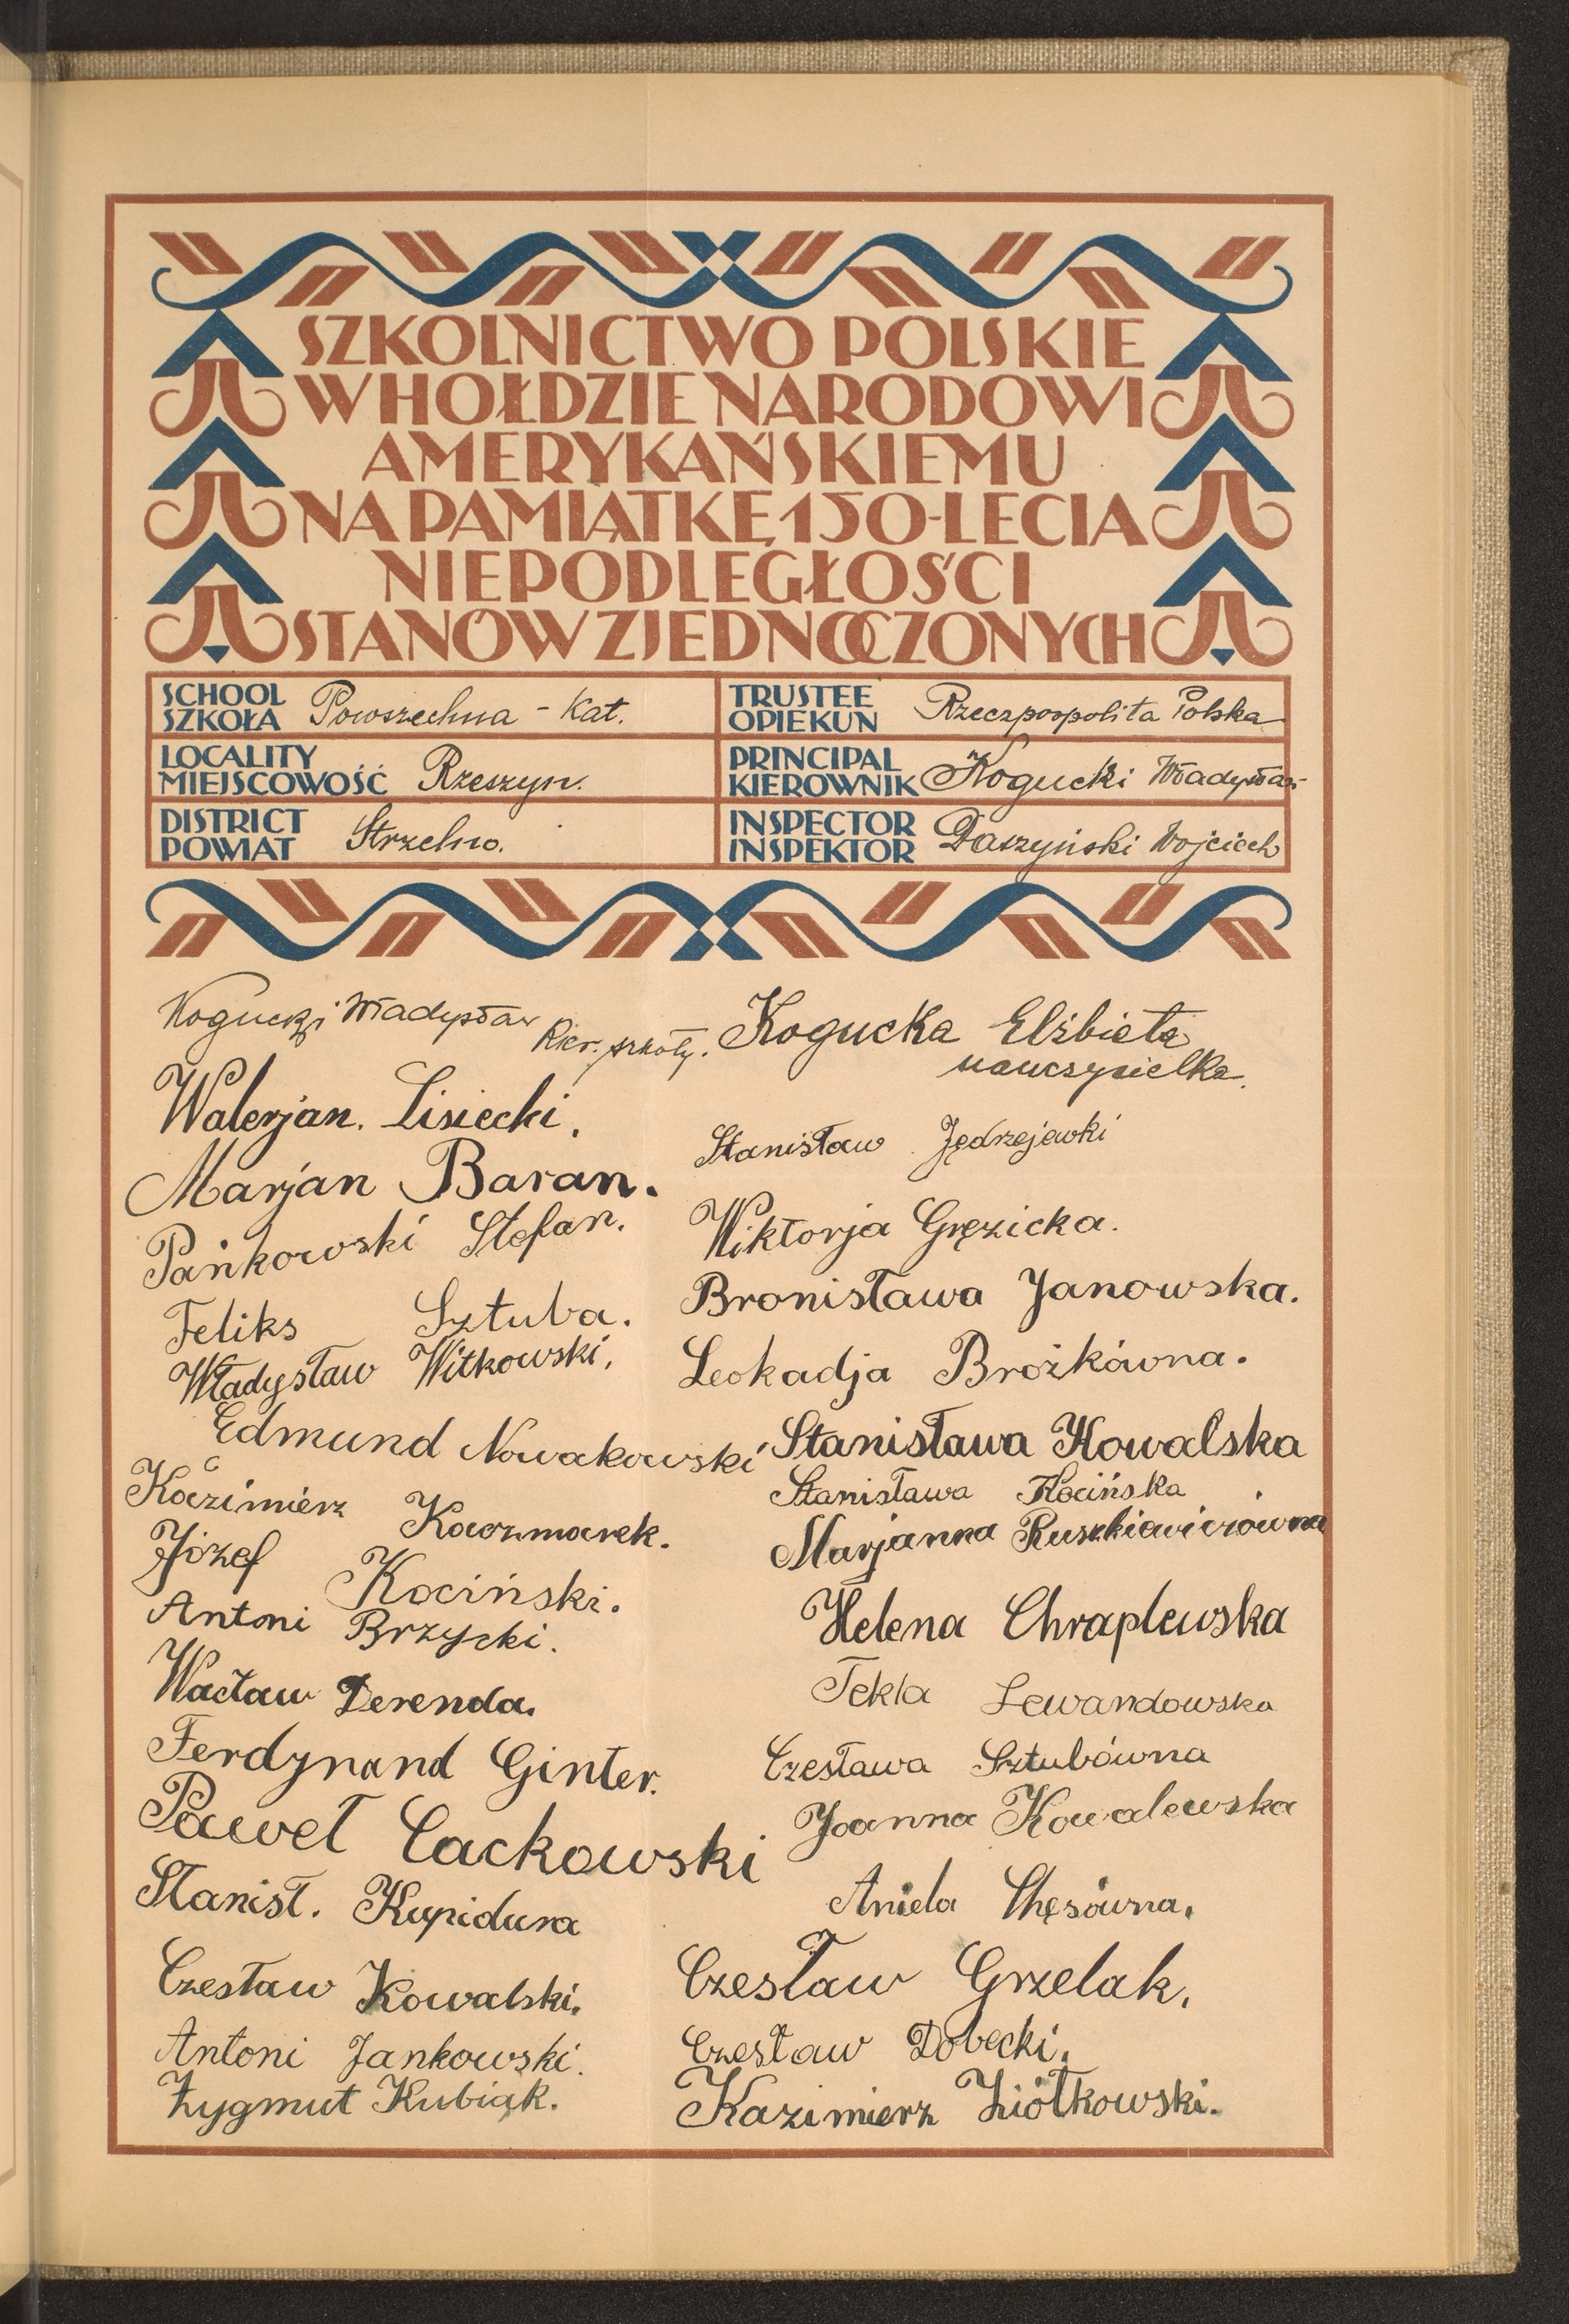 SZKOLNICTWO POLSKIE
W HOŁDZIE NARODOWI
AMERYKAŃSKIEMU
NA PAMIĄTKĘ 150-LECIA
NIEPODLEGŁOŚCI
STANÓW ZJEDNOCZONYCH
SCHOOL
SZKOŁA Powszechna - Kat.
TRUSTEE
OPIEKUN Rzeczpospolita Polska
LOCALITY
MIEJSCOWOŚĆ Rzeszyn.
PRINCIPAL
KIEROWNIK Kogucki Władysław
DISTRICT
POWIAT Strzelno.
INSPECTOR
INSPEKTOR Daszyński Wojciech
Kogucki Władysław
Kier. szkoły.
Walerjan. Lisiecki.
Marjan Baran.
Pańkowski Stefan.
Feliks Sztuba.
Władysław Witkowski.
Edmund Nowakowski
Kazimierz Kaczmarek.
Józef Kociński.
Antoni Brzycki.
Wacław Derenda.
Ferdynand Ginter.
Paweł Cackowski
Stanisł. Kupidura
Czesław Kowalski.
Antoni Jankowski.
Zygmut Kubiak.
Kogucka Elżbieta
nauczycielka.
Stanisław Jędrzejewki
Wiktorja Gręzicka.
Bronisława Janowska.
Leokadja Brożkówna.
Stanisława Kowalska
Stanisława Kocińska
Marjanna Ruszkiewiczówna
Helena Chraplewska
Tekla Lewandowska
Czesława Sztubówna
Joanna Kowalewska
Aniela
Czesław Grzelak.
Czesław Dobecki.
Kazimierz Ziółkowski.